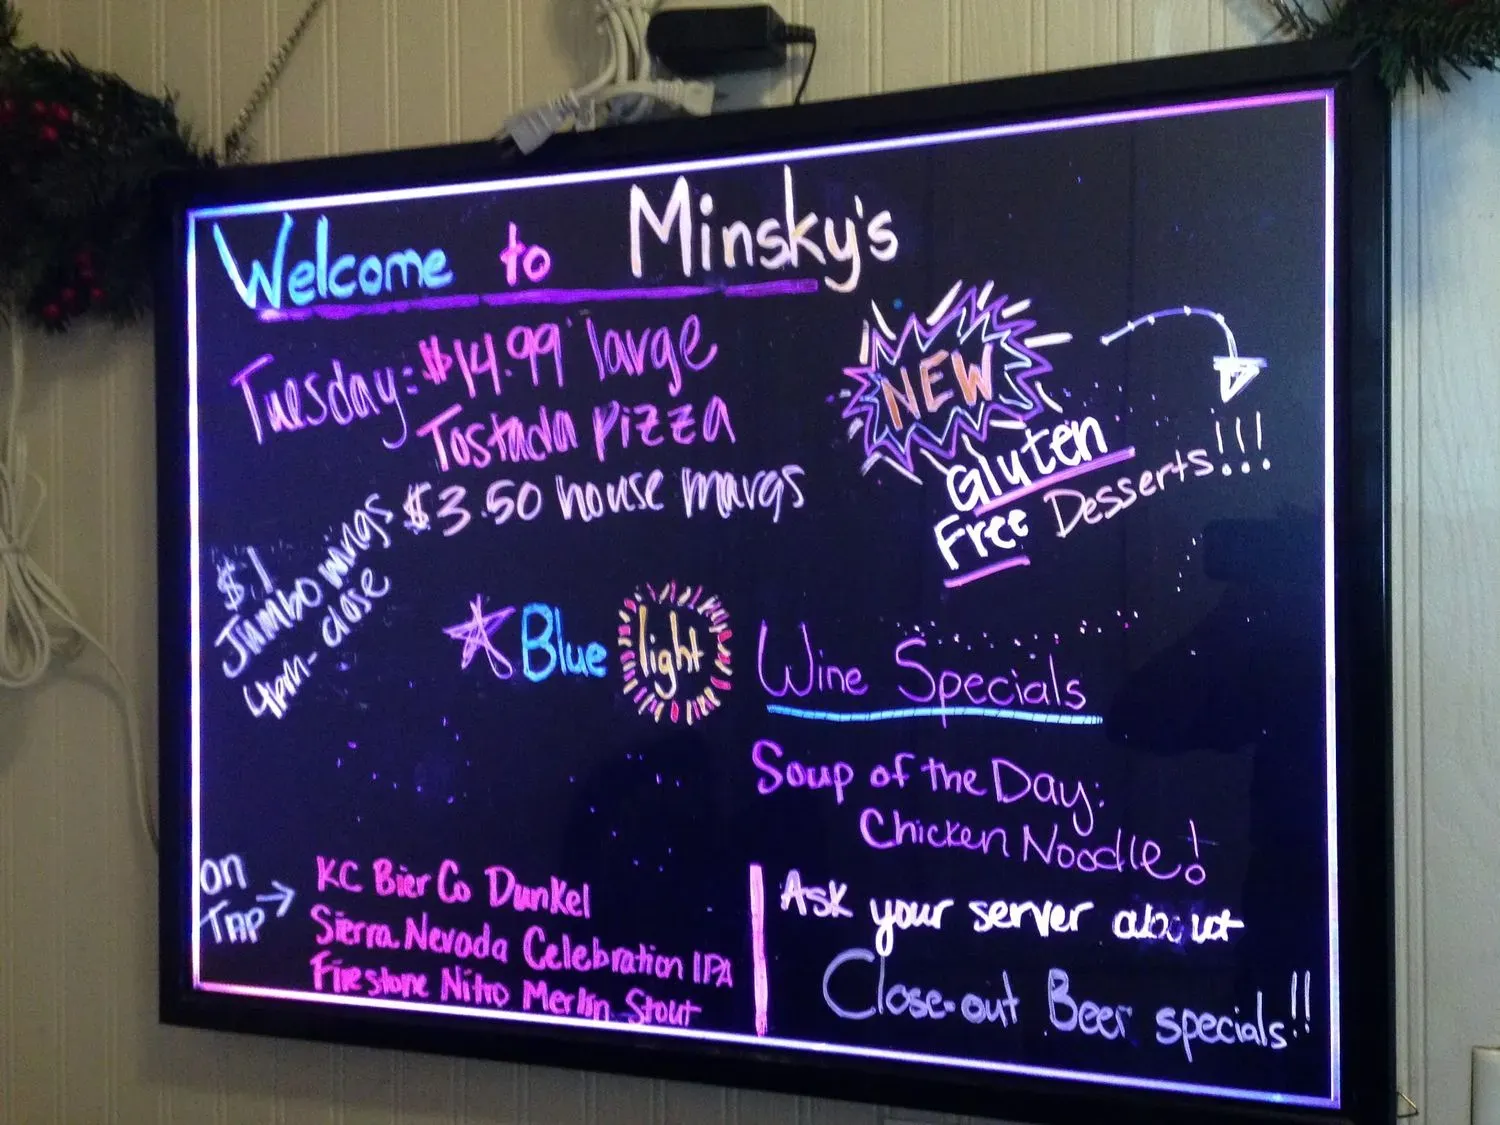 Welcome to Minsky's
Tuesday: $14.99 large
Tostada pizza
$3.50 house margs
$1
Jumbo wings
4pm-close
NEW
Gluten
Free Desserts!!!
Blue light Wine Specials
Soup of the Day:
Chicken Noodle!
on
TAP
KC Bier Co Dunkel
Sierra Nevada Celebration IPA
Firestone Nitro Merlin Stout
Ask your server about
Close-out Beer specials!!